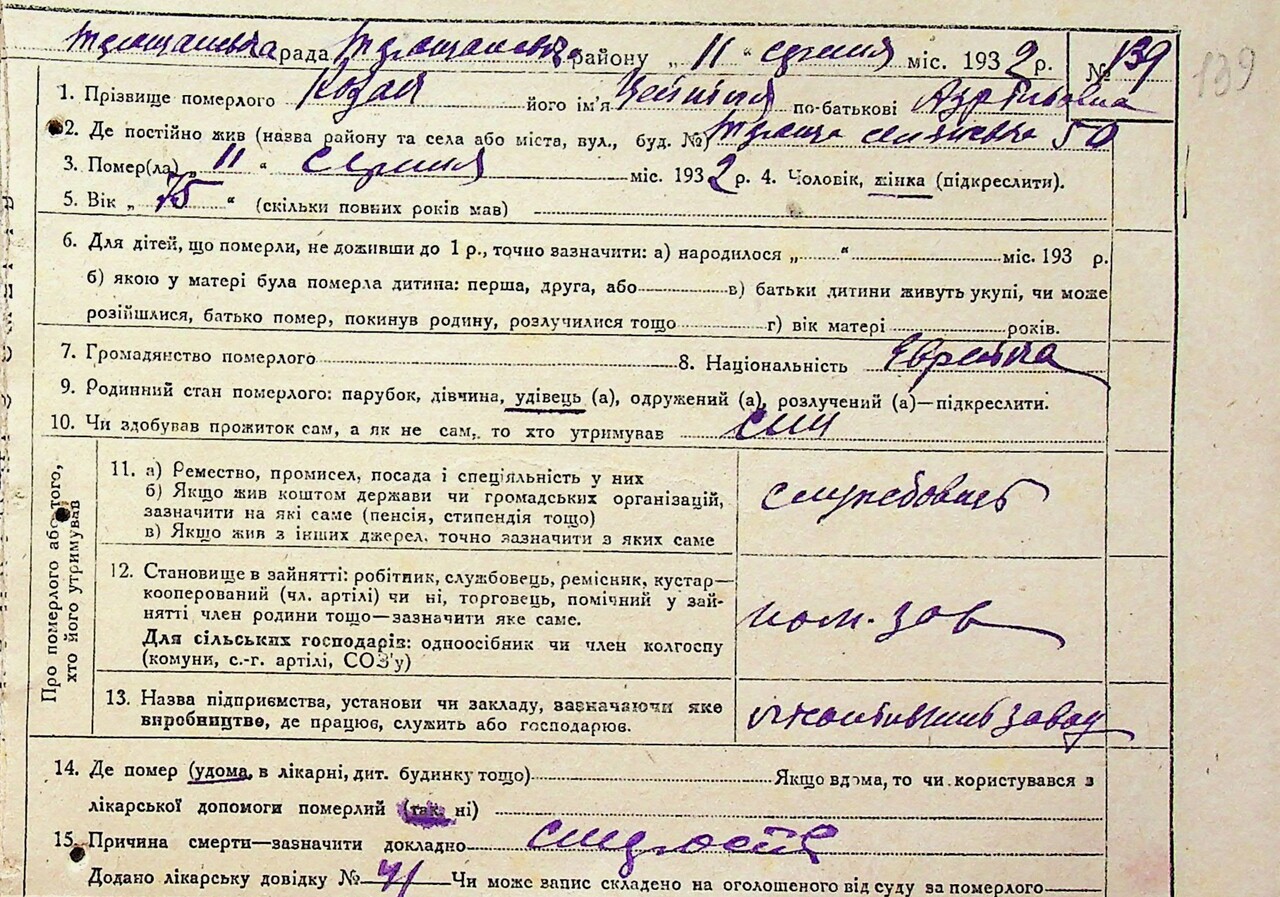 рада району „ 11 “ серпня міс. 1932 р. № 139 139
1. Прізвище померлого Козая його ім'я по-батькові
2. Де постійно жив (назва району та села або міста, вул., буд. №) 50
3. Помер(ла) „ 11 “ серпня міс. 1932 р. 4. Чоловік, жінка (підкреслити).
5. Вік „ 75 “ (скільки повних років мав)
6. Для дітей, що померли, не доживши до 1 р., точно зазначити: а) народилося „ “ міс. 193 р.
б) якою у матері була померла дитина: перша, друга, або в) батьки дитини живуть укупі, чи може
розійшлися, батько помер, покинув родину, розлучилися тощо г) вік матері років.
7. Громадянство померлого 8. Національність Єврейка
9. Родинний стан померлого: парубок, дівчина, удівець (а), одружений (а), розлучений (а)—підкреслити.
10. Чи здобував прожиток сам, а як не сам, то хто утримував син
Про померлого або того,
хто його утримував
11. а) Ремество, промисел, посада і спеціяльність у них
б) Якщо жив коштом держави чи громадських організацій,
зазначити на які саме (пенсія, стипендія тощо)
в) Якщо жив з інших джерел, точно зазначити з яких саме
службовець
12. Становище в зайнятті: робітник, службовець, ремісник, кустар—
кооперований (чл. артілі) чи ні, торговець, помічний у зай-
нятті член родини тощо—зазначити яке саме.
Для сільських господарів: одноосібник чи член колгоспу
(комуни, с.-г. артілі, СОЗ'у)
пом. зав
13. Назва підприємства, установи чи закладу, зазначаючи яке
виробництво, де працює, служить або господарює.
завод
14. Де помер (удома, в лікарні, дит. будинку тощо) Якщо вдома, то чи користувався з
лікарської допомоги померлий (так, ні)
15. Причина смерти—зазначити докладно
Додано лікарську довідку № 41 Чи може запис складено на оголошеного від суду за померлого